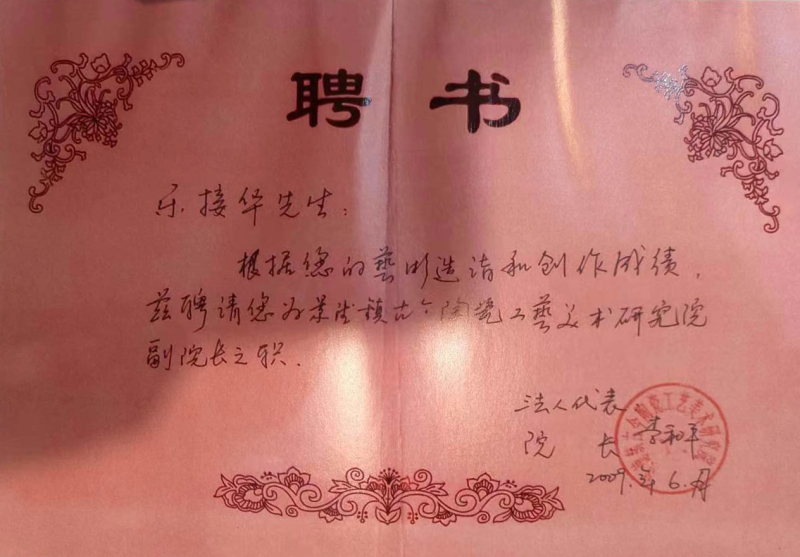 聘书
乐接华先生：
根据您的藝术造诣和创作成绩，
兹聘请您为景德镇古今陶瓷工藝美术研究院
副院长之职.
法人代表
院 长 李和平
2009.年6.月